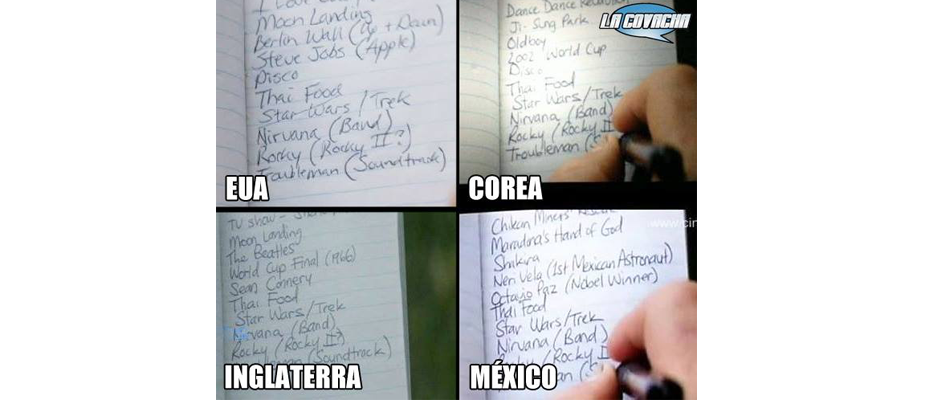 I Love Lucy
Moon Landing
Berlin Wall (Up + Down)
Steve Jobs (Apple)
Disco
Thai Food
Star Wars / Trek
Nirvana (Band)
Rocky (Rocky II?)
Troubleman (Soundtrack)
EUA
Dance Dance Revolution
Ji-Sung Park
Oldboy
2002 World Cup
Disco
Thai Food
Star Wars/Trek
Nirvana (Band)
Rocky (Rocky II
Troubleman (S
COREA
LA COVACHA
TV show -
Moon Landing
The Beatles
World Cup Final (1966)
Sean Connery
Thai Food
Star Wars/Trek
Nirvana (Band)
Rocky (Rocky II?)
(Soundtrack)
INGLATERRA
Chilean Miners' Rescue
Maradona's Hand of God
Shakira
Neri Vela (1st Mexican Astronaut)
Octavio Paz (Nobel Winner)
Thai Food
Star Wars/Trek
Nirvana (Band)
(Rocky I
MÉXICO